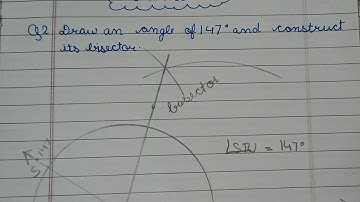 Q2 Draw an angle of 147° and construct
its bisector.
bisector
147°
S
∠STU = 147°